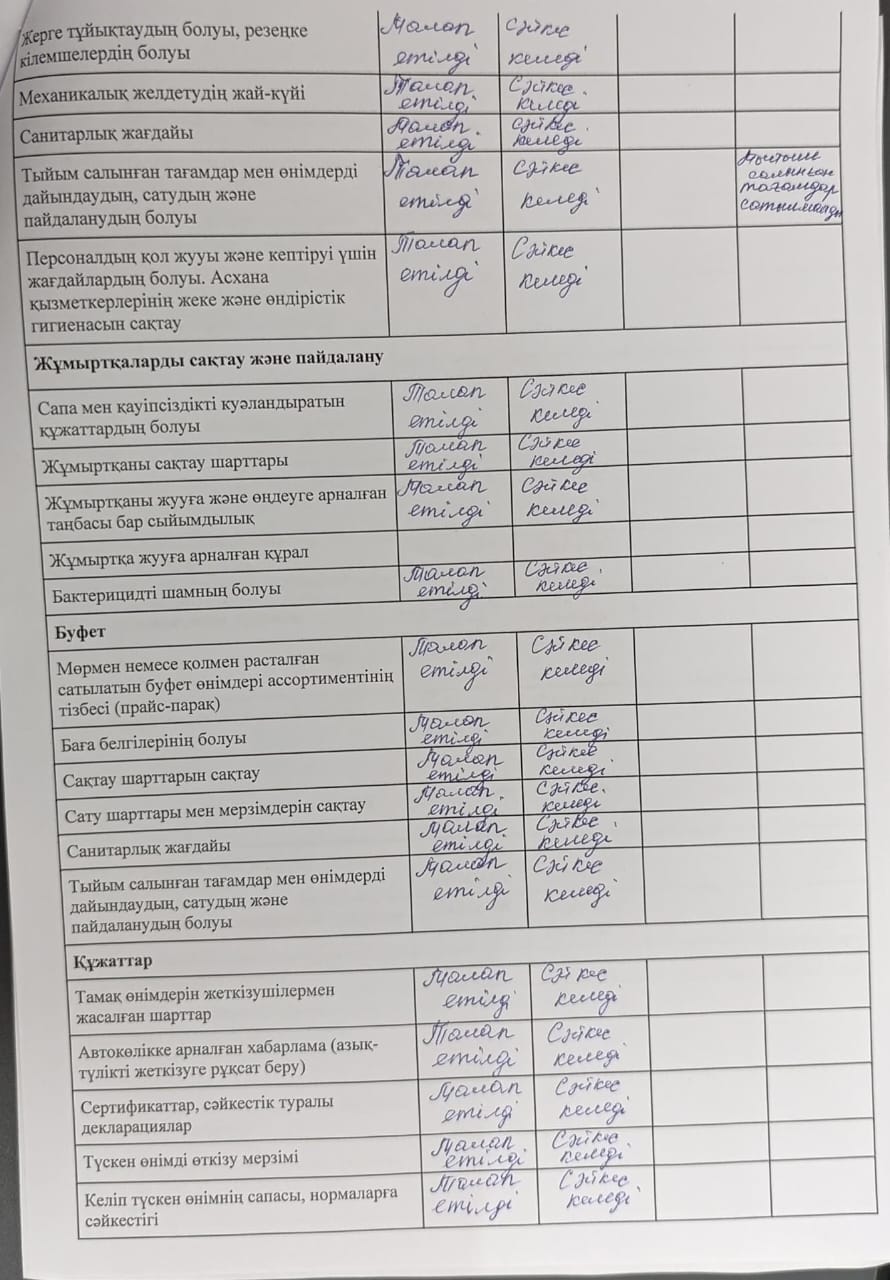 Жерге тұйықтаудың болуы, резеңке Талап Сәйкес
кілемшелердің болуы етілді келеді
Механикалық желдетудің жай-күйі Талап Сәйкес
етілді келеді
Санитарлық жағдайы Талап Сәйкес
етілді келеді
Тыйым салынған тағамдар мен өнімдерді Талап Сәйкес
дайындаудың, сатудың және етілді келеді
пайдаланудың болуы
салынған
тағамдар
сатылмайды
Персоналдың қол жууы және кептіруі үшін Талап Сәйкес
жағдайлардың болуы. Асхана етілді келеді
қызметкерлерінің жеке және өндірістік
гигиенасын сақтау
Жұмыртқаларды сақтау және пайдалану
Сапа мен қауіпсіздікті куәландыратын Талап Сәйкес
құжаттардың болуы етілді келеді
Жұмыртқаны сақтау шарттары Талап Сәйкес
етілді келеді
Жұмыртқаны жууға және өңдеуге арналған Талап Сәйкес
таңбасы бар сыйымдылық етілді келеді
Жұмыртқа жууға арналған құрал
Бактерицидті шамның болуы Талап Сәйкес
етілді келеді
Буфет
Мөрмен немесе қолмен расталған Талап Сәйкес
сатылатын буфет өнімдері ассортиментінің етілді келеді
тізбесі (прайс-парақ)
Баға белгілерінің болуы Талап Сәйкес
етілді келеді
Сақтау шарттарын сақтау Талап Сәйкес
етілді келеді
Сату шарттары мен мерзімдерін сақтау Талап Сәйкес
етілді келеді
Санитарлық жағдайы Талап Сәйкес
етілді келеді
Тыйым салынған тағамдар мен өнімдерді Талап Сәйкес
дайындаудың, сатудың және етілді келеді
пайдаланудың болуы
Құжаттар
Тамақ өнімдерін жеткізушілермен Талап Сәйкес
жасалған шарттар етілді келеді
Автокөлікке арналған хабарлама (азық- Талап Сәйкес
түлікті жеткізуге рұқсат беру) етілді келеді
Сертификаттар, сәйкестік туралы Талап Сәйкес
декларациялар етілді келеді
Түскен өнімді өткізу мерзімі Талап Сәйкес
етілді келеді
Келіп түскен өнімнің сапасы, нормаларға Талап Сәйкес
сәйкестігі етілді келеді